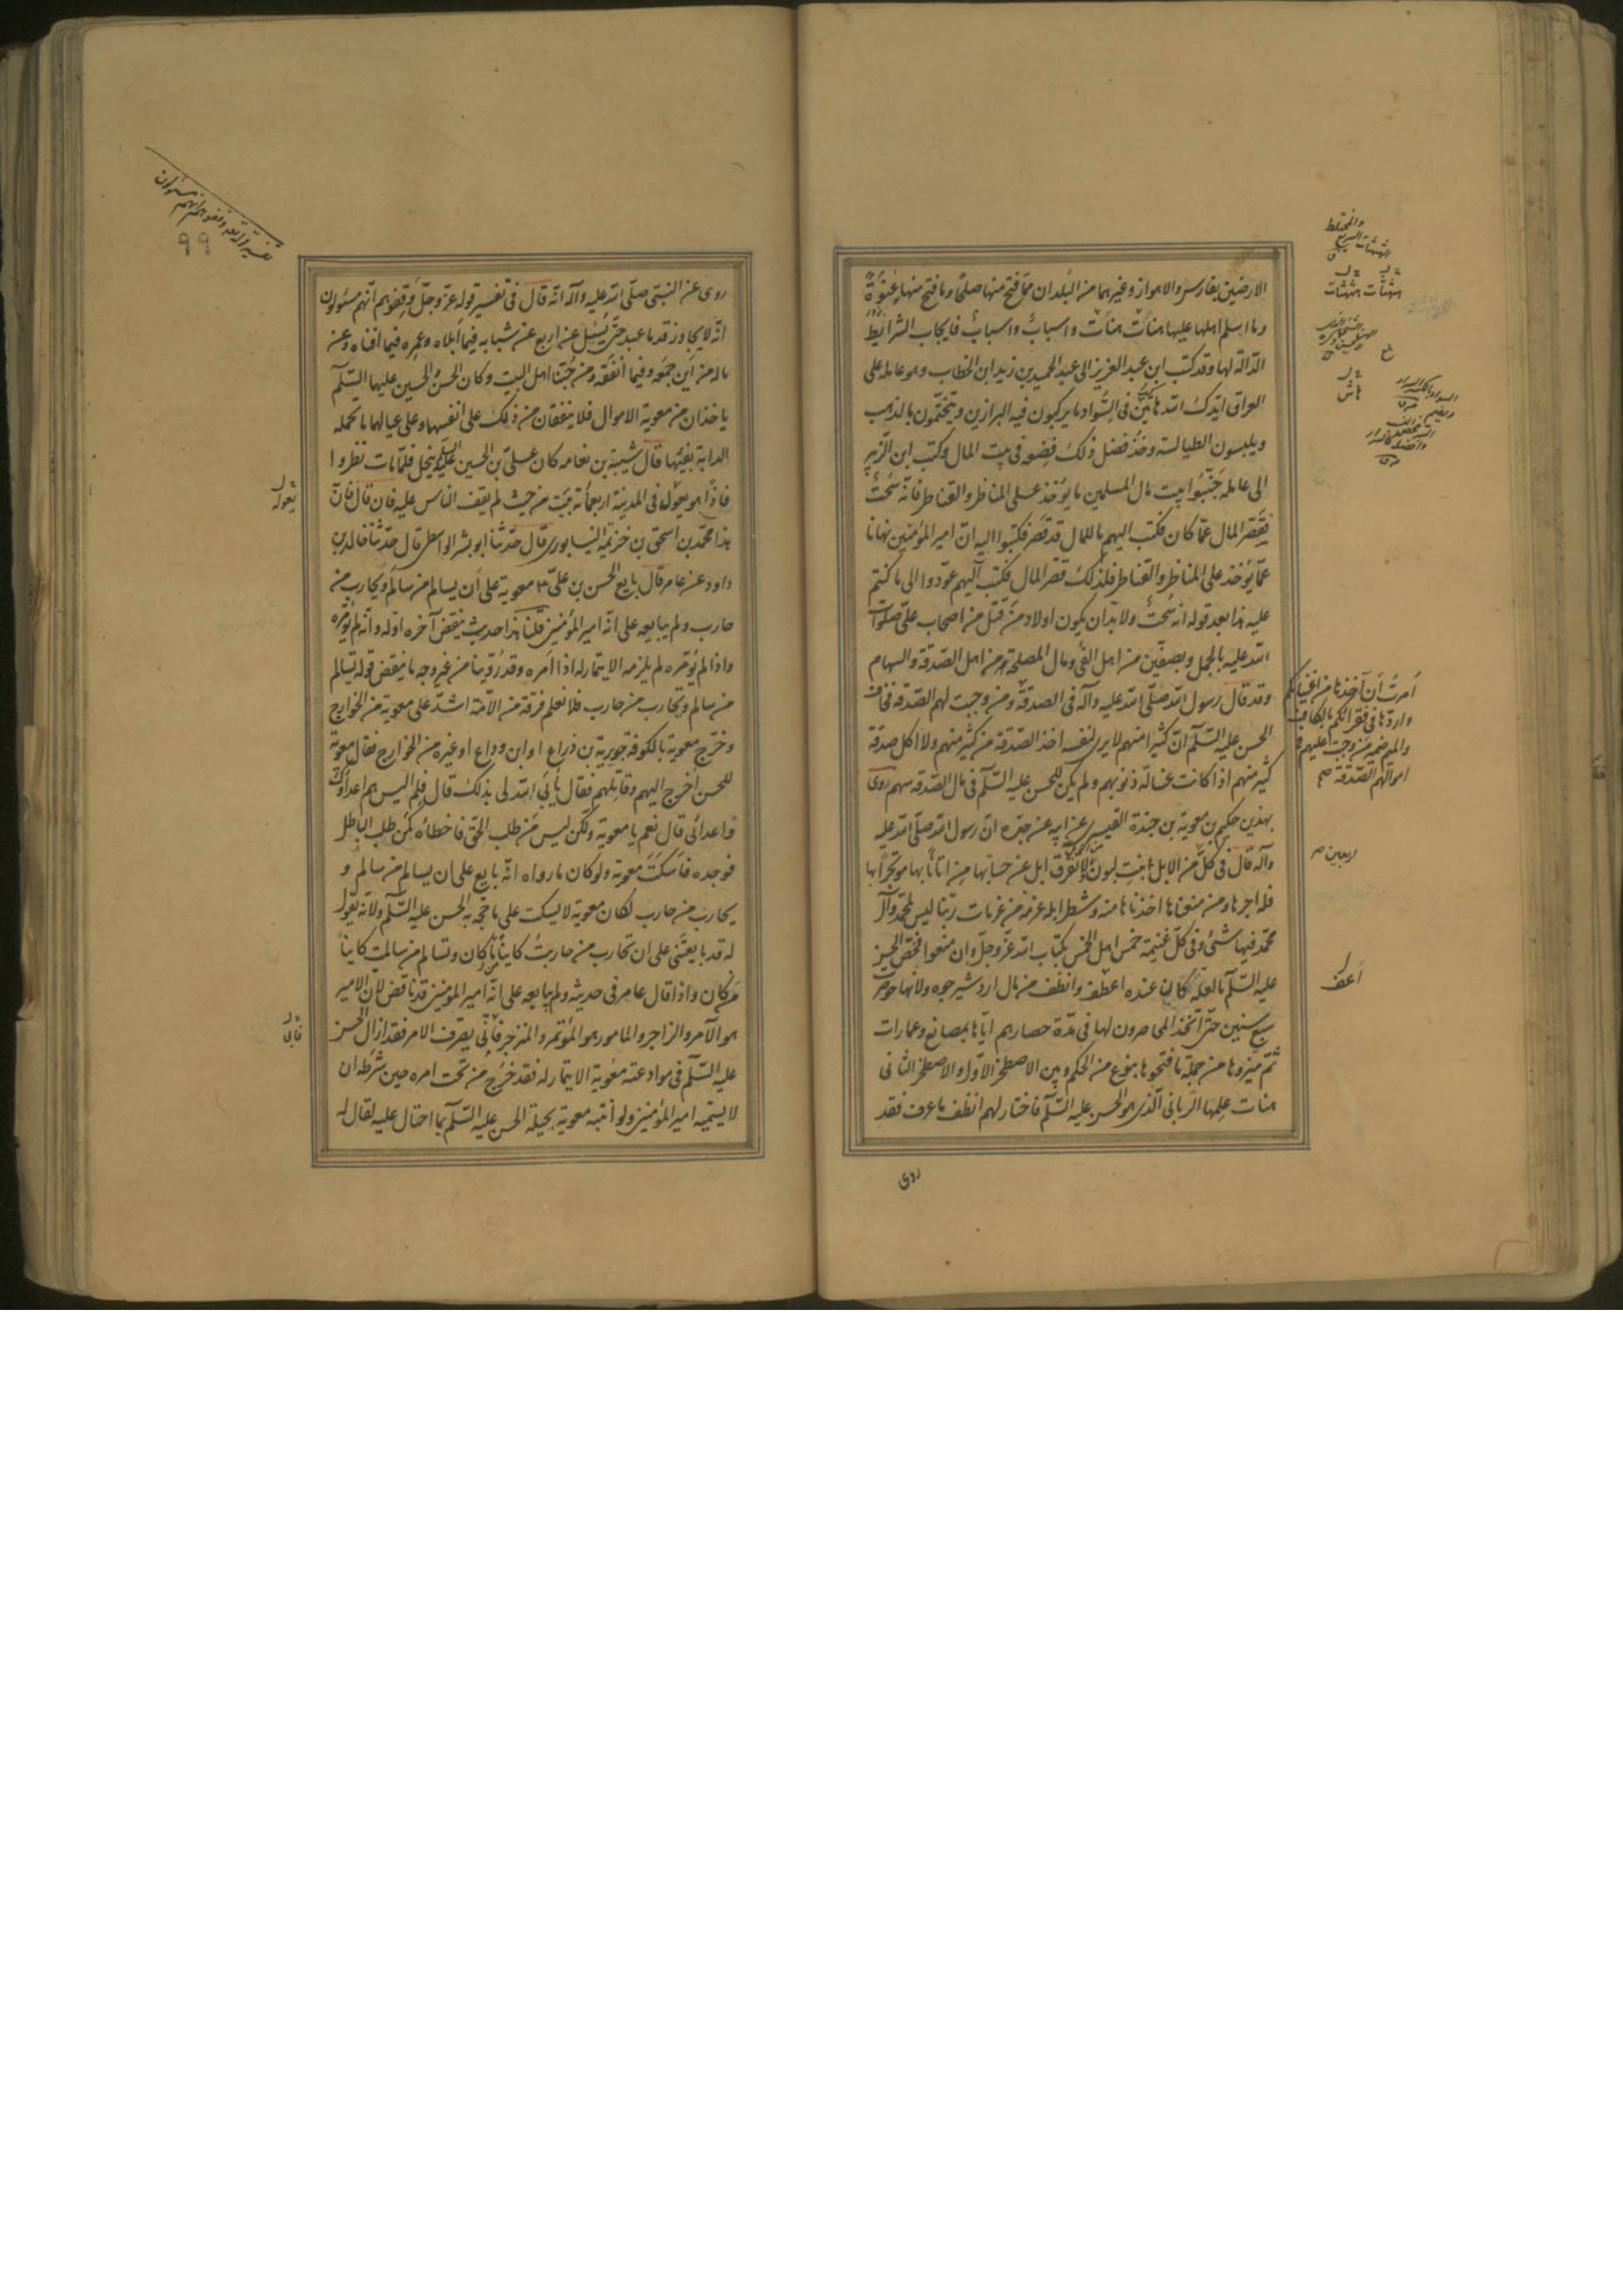 الارضين بفارس والاهواز وغيرهما من البلدان مما فتح منها صلحا وما فتح منها عنوة
وما اسلم اهلها عليها هنات هنات واسباب واسباب فايجاب الشرايط
الدالة لها وقد كتب ابن عبد العزيز الى عبد الحميد بن زيد ابن الخطاب وهو عامله على
العراق ايدك الله هاتين في السواد ما يركبون فيه البراذين ويتختمون بالذهب
ويلبسون الطيالسة وخذ فضل ذلك فضعه في بيت المال وكتب ابن الزبير
الى عامله جنبوا بيت مال المسلمين ما يؤخذ على المناظر والقناطر فانه سحت
فقصر المال عما كان فكتب اليهم ما للمال قد قصر فكتبوا اليه ان امير المؤمنين نهانا
عما يؤخذ على المناظر والقناطر فلذلك قصر المال فكتب اليهم عودوا الى ما كنتم
عليه هذا بعد قوله انه سحت ولا بد ان يكون اولاد من قتل من اصحاب على صلوات
الله عليه بالجمل وبصفين من اهل الفئ ومال المصلحة ومن اهل الصدقة والسهام
وقد قال رسول الله صلى الله عليه وآله في الصدقة ومن وجبت لهم الصدقة فخاف
الحسن عليه السلم ان كثيرا منهم لا يرى لنفسه اخذ الصدقة من كثير منهم ولا اكل صدقة
كثير منهم اذا كانت غسالة ذنوبهم ولم يكن للحسن عليه السلم في مال الصدقة سهم روى
بهذين حكيم بن معوية بن حيدة القشيرى عن ابيه عن جده ان رسول الله صلى الله عليه
وآله قال في كل من الابل ابنت لبون ولا تفرق ابل عن حسابها من اتانا بها موتجرا بها
فله اجرها ومن منعناها اخذناها منه وشطر ابله عزمة من عزمات ربنا ليس لمحمد وآل
محمد فيها شئ وفي كل غنيمة خمس اهل الخمس بكتاب الله عز وجل وان منعوا فخص الحسن
عليه السلم ما لعله كان عنده اعطف وانظف من مال اردشير جوه ولانها حوصرت
سبع سنين حتى اتخذ المحاصرون لها في مدة حصارهم اياها مصانع وعمارات
ثم ميزوها من جملة ما فتحوها بنوع من الحكم وبين الاصطخر الاول والاصطخر الثانى
هنات علمها الربانى الذى هو الحسن عليه السلم فاختار لهم انظف ما عرف فقد
روى
امرت ان آخذها من اغنيائكم
واردها في فقرائكم بالكاف
والميم ضمير من وجبت عليهم في
اموالهم الصدقة صح
اربعين م
اعف
روى عن النبى صلى الله عليه وآله انه قال في تفسير قوله عز وجل وقفوهم انهم مسئولون
انه لا يجاوز قدما عبد حتى يسئل عن اربع عن شبابه فيما ابلاه وعمره فيما افناه وعن
ماله من اين جمعه وفيما انفقه ومن حبنا اهل البيت وكان الحسن والحسين عليهما السلم
ياخذان من معوية الاموال فلا ينفقان من ذلك على انفسهما وعلى عيالهما ما تحمله
الدابة بفيها قال شيبة بن نعامه كان على بن الحسين عليه السلم يبخل فلما مات نظروا
فاذا هو يعول في المدينة اربعمأة بيت من حيث لم يقف الناس عليه فان قال فان
هذا محمد بن اسحق بن خزيمة النيسابورى قال حدثنا ابو بشر الواسطى قال حدثنا خالد بن
داود عن عامر قال بايع الحسن بن على ع معوية على ان يسالم من سالم ويحارب من
حارب ولم يبايعه على انه امير المؤمنين قلنا هذا حديث ينقض آخره اوله وانه لم يؤمره
واذا لم يؤمره لم يلزمه الايتمار له اذا امره وقد روينا من غير وجه ما ينقض قوله تسالم
من سالم وتحارب من حارب فلا نعلم فرقة من الامة اشد على معوية من الخوارج
وخرج معوية بالكوفة جويرية بن ذراع او ابن وداع او غيره من الخوارج فقال معوية
للحسن اخرج اليهم وقاتلهم فقال يأبى الله لى بذلك قال فلم اليس هم اعداؤك
واعدائى قال نعم يا معوية ولكن ليس من طلب الحق فاخطاه كمن طلب الباطل
فوجده فاسكت معوية ولو كان ما رواه انه بايع على ان يسالم من سالم و
يحارب من حارب لكان معوية لا يسكت على ما حجه به الحسن عليه السلم ولانه يقول
له قد بايعتنى على ان تحارب من حاربت كاينا من كان وتسالم من سالمت كاينا
من كان واذا قال عامر في حديثه ولم يبايعه على انه امير المؤمنين قد ناقض لان الامير
هو الآمر والزاجر والمامور هو المؤتمر والمنزجر فابى يصرف الامر فقد ازال الحسن
عليه السلم في موادعته معوية الايتمار له فقد خرج من تحت امره حين شرط ان
لا يسميه امير المؤمنين ولو انتبه معوية بحيلة الحسن عليه السلم بما احتال عليه لقال له
يعول
فابى
٩٩